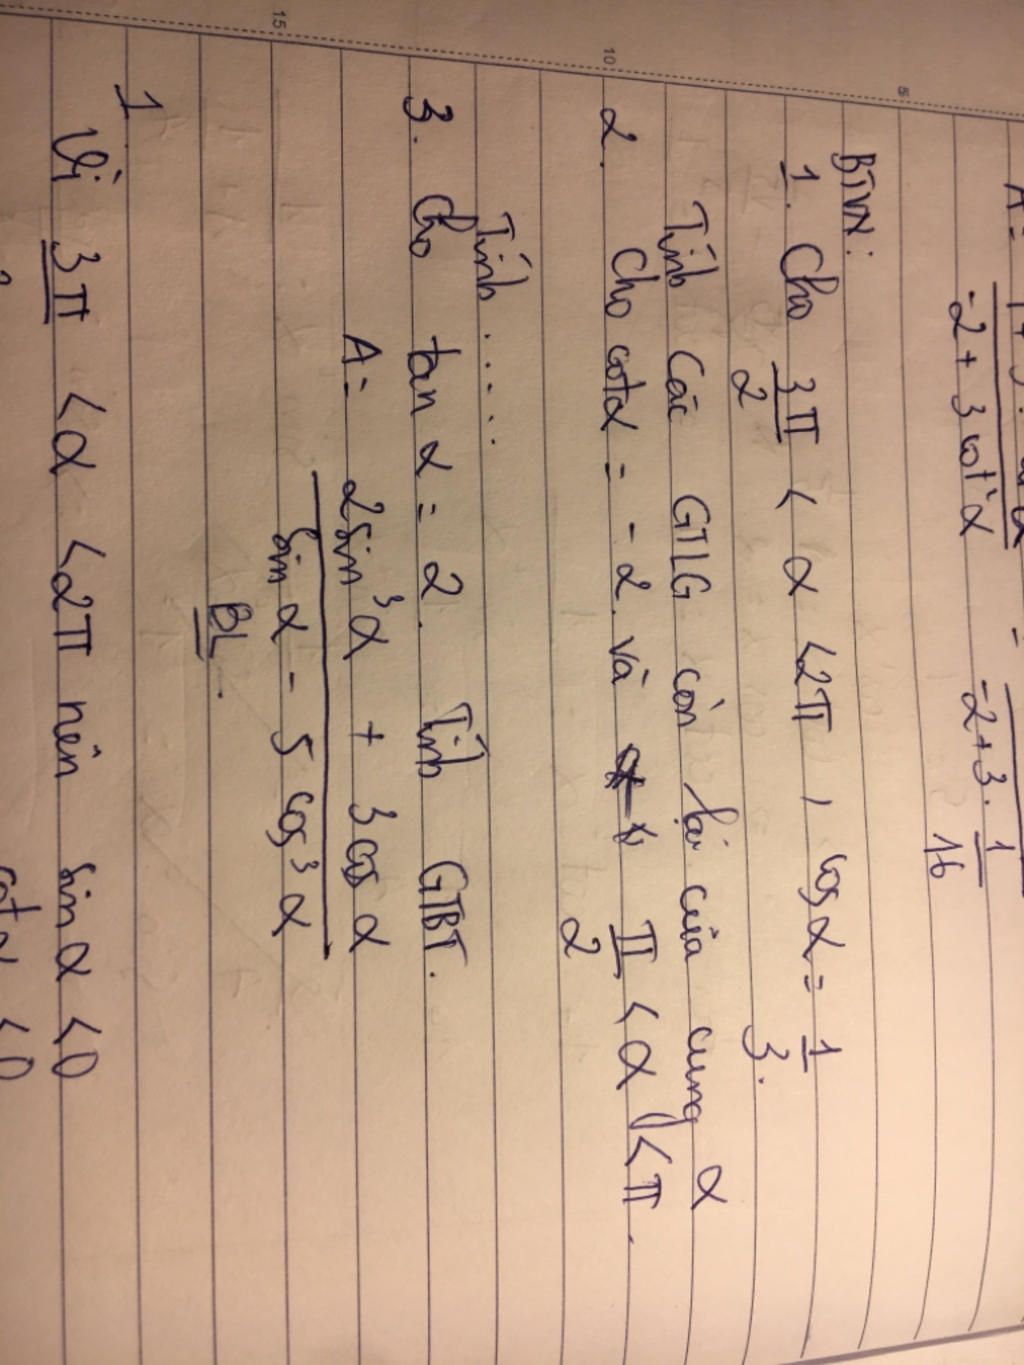 -2 + 3 cot²α = -2 + 3. 1/16
BTVN:
1. Cho 3π/2 < α < 2π, cosα = 1/3.
Tính các GTLG còn lại của cung α
2. Cho cotα = -2 và π/2 < α < π.
Tính .....
3. Cho tan α = 2. Tính GTBT.
A = 2sin³α + 3cosα
sin α - 5 cos³α
BL.
1
Vì 3π < α < 2π nên sin α < 0
cotα < 0
5
10
15